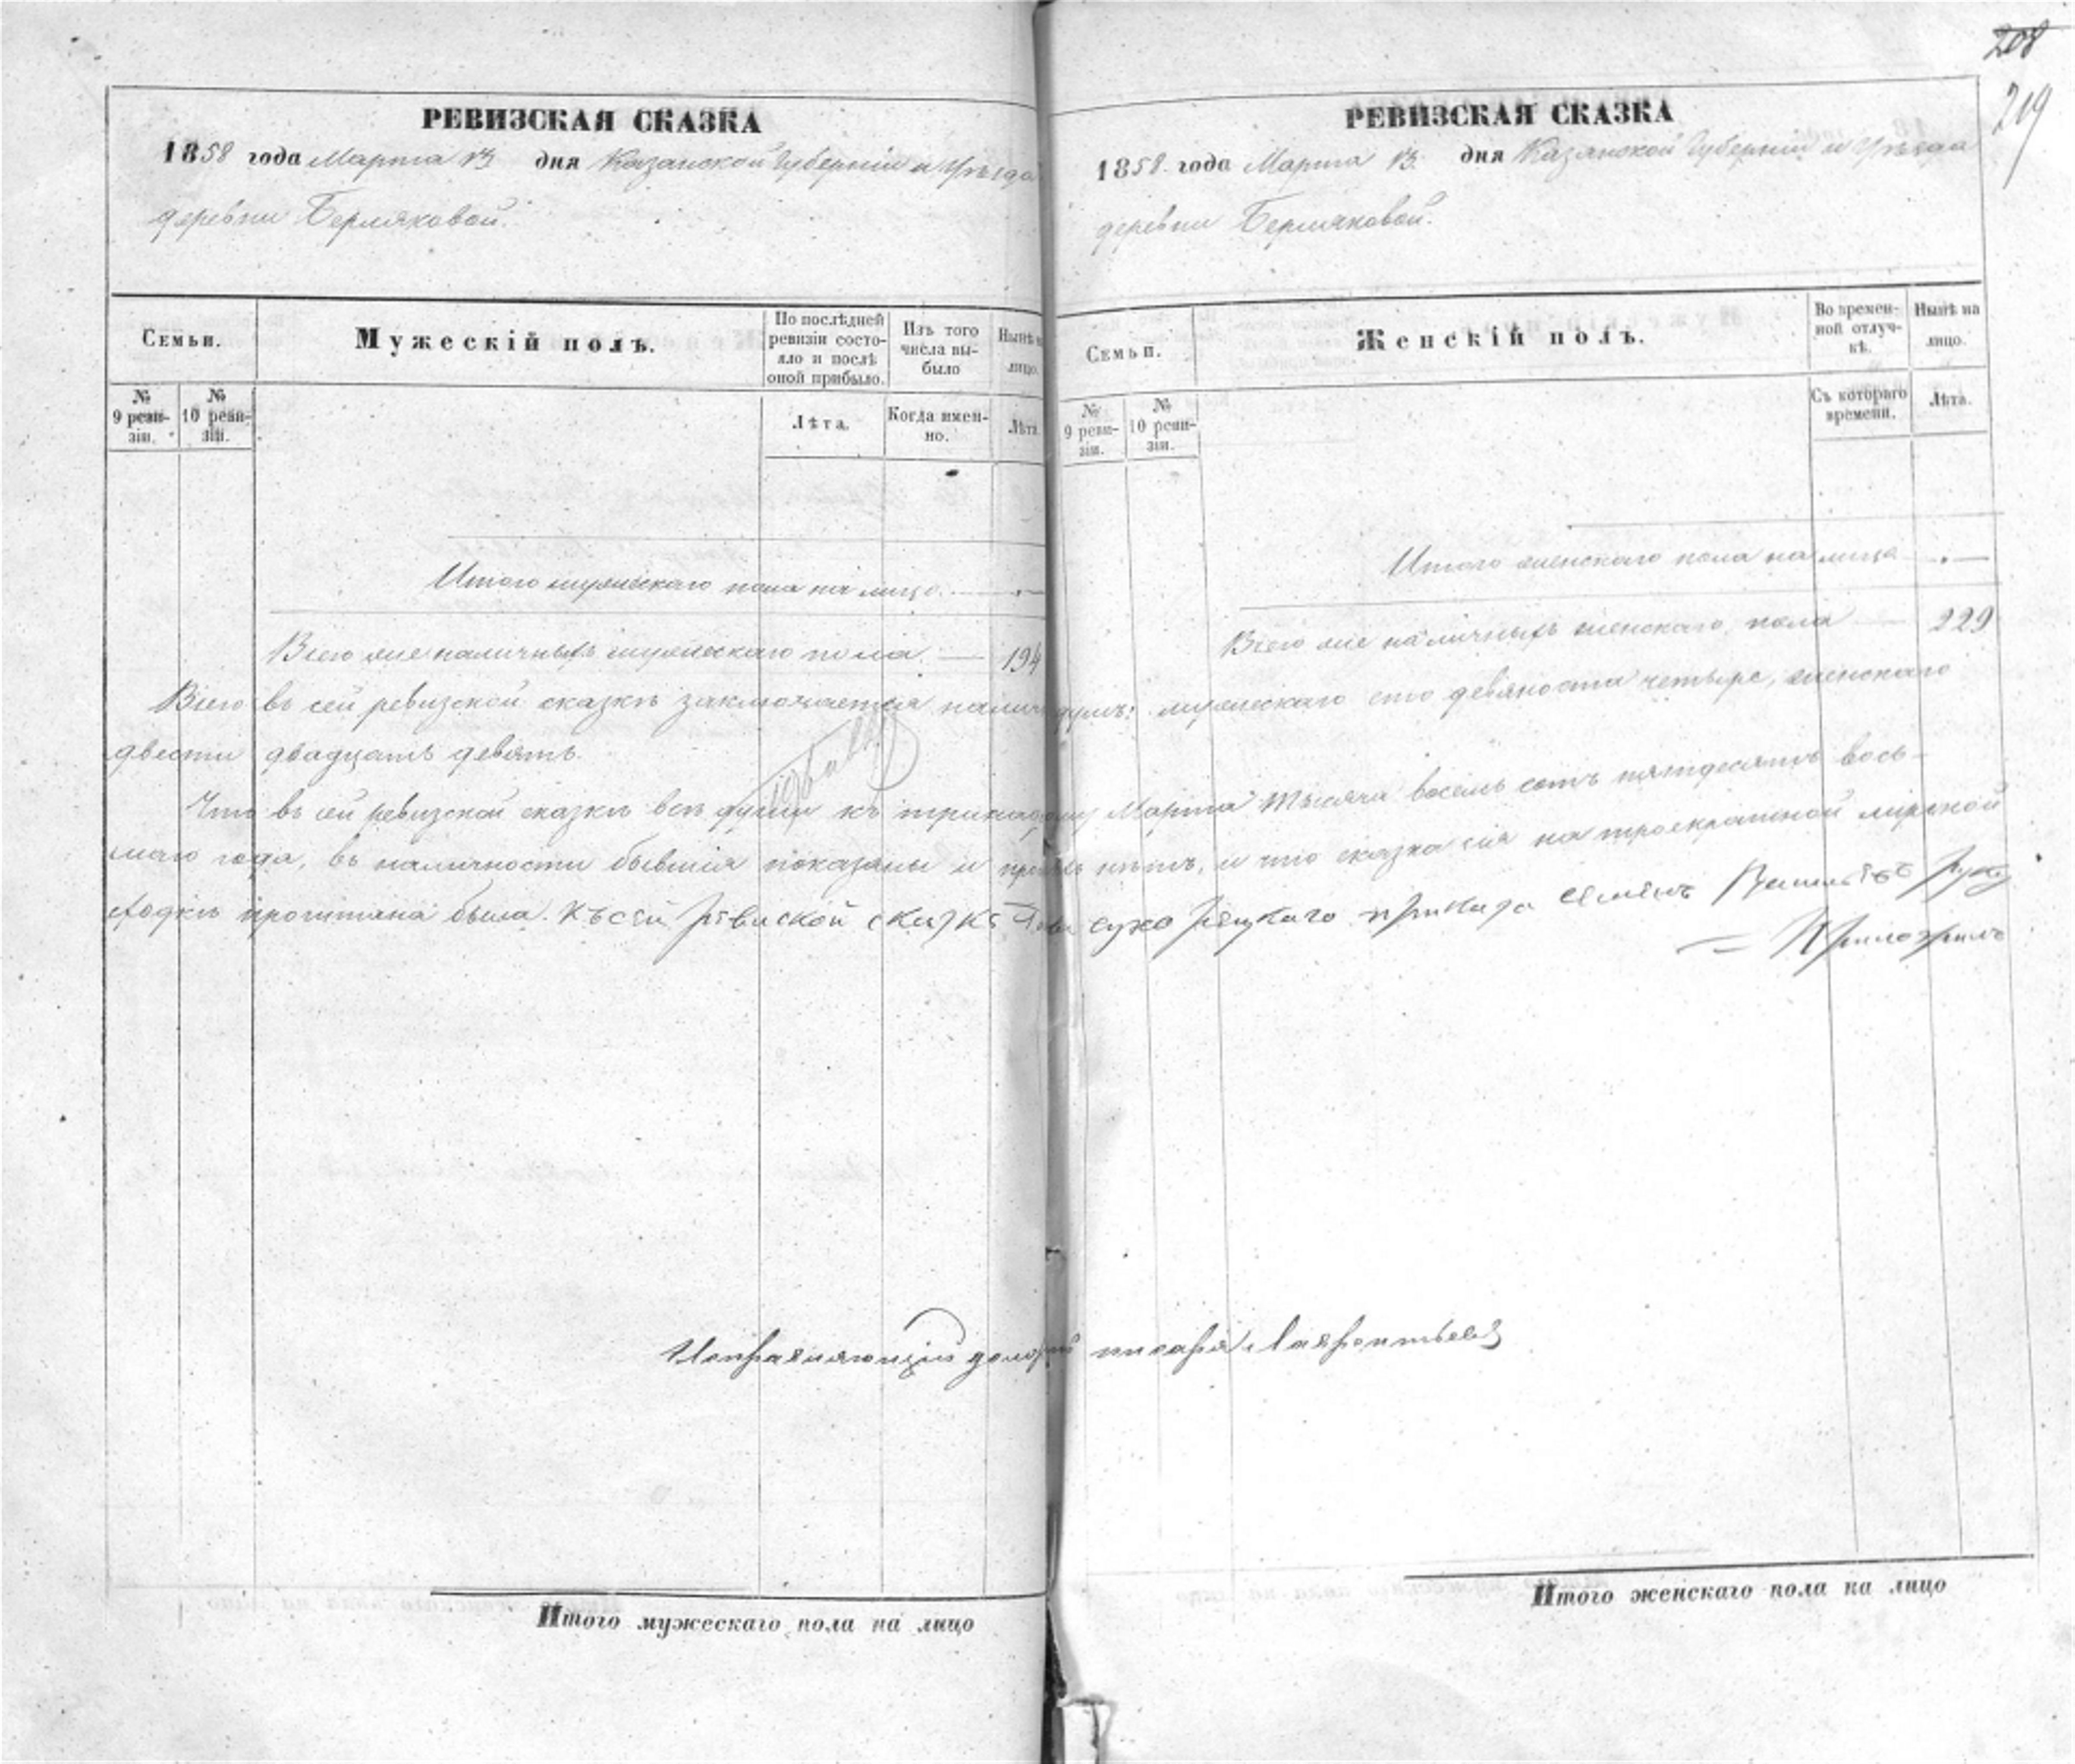 208
219
РЕВИЗСКАЯ СКАЗКА
1858 года Марта 13 дня Казанской Губерніи и Уѣзда
деревни Берляковой.
Семьи.
Мужескій полъ.
По послѣдней ревизіи состояло и послѣ оной прибыло.
Изъ того числа выбыло
Нынѣ на лицо.
№ 9 ревизіи.
№ 10 ревизіи.
Лѣта.
Когда именно.
Лѣта.
Итого мужескаго пола на лицо. —
Всего же наличныхъ мужескаго пола. — 194
РЕВИЗСКАЯ СКАЗКА
1858 года Марта 13 дня Казанской Губерніи и Уѣзда
деревни Берляковой.
Семьи.
Женскій полъ.
Во временной отлучкѣ.
Нынѣ на лицо.
№ 9 ревизіи.
№ 10 ревизіи.
Съ котораго времени.
Лѣта.
Итого женскаго пола на лицо —
Всего же наличныхъ женскаго пола — 229
Всего въ сей ревизской сказкѣ заключается налич душъ: мужескаго сто девяносто четыре, женскаго
двести двадцать девять.
Что въ сей ревизской сказкѣ всѣ души къ тринад Марта тысяча восемь сотъ пятьдесятъ вось-
маго года, въ наличности бывшія показаны и нѣтъ, и что сказка сія на троекратной мирской
сходкѣ прочитана была. Къ сей ревиской сказкѣ приказа Семенъ Васильевъ руку
Приложилъ
Исправляющій долж писаря Лаврентьевъ
Итого мужескаго пола на лицо
Итого женскаго пола на лицо